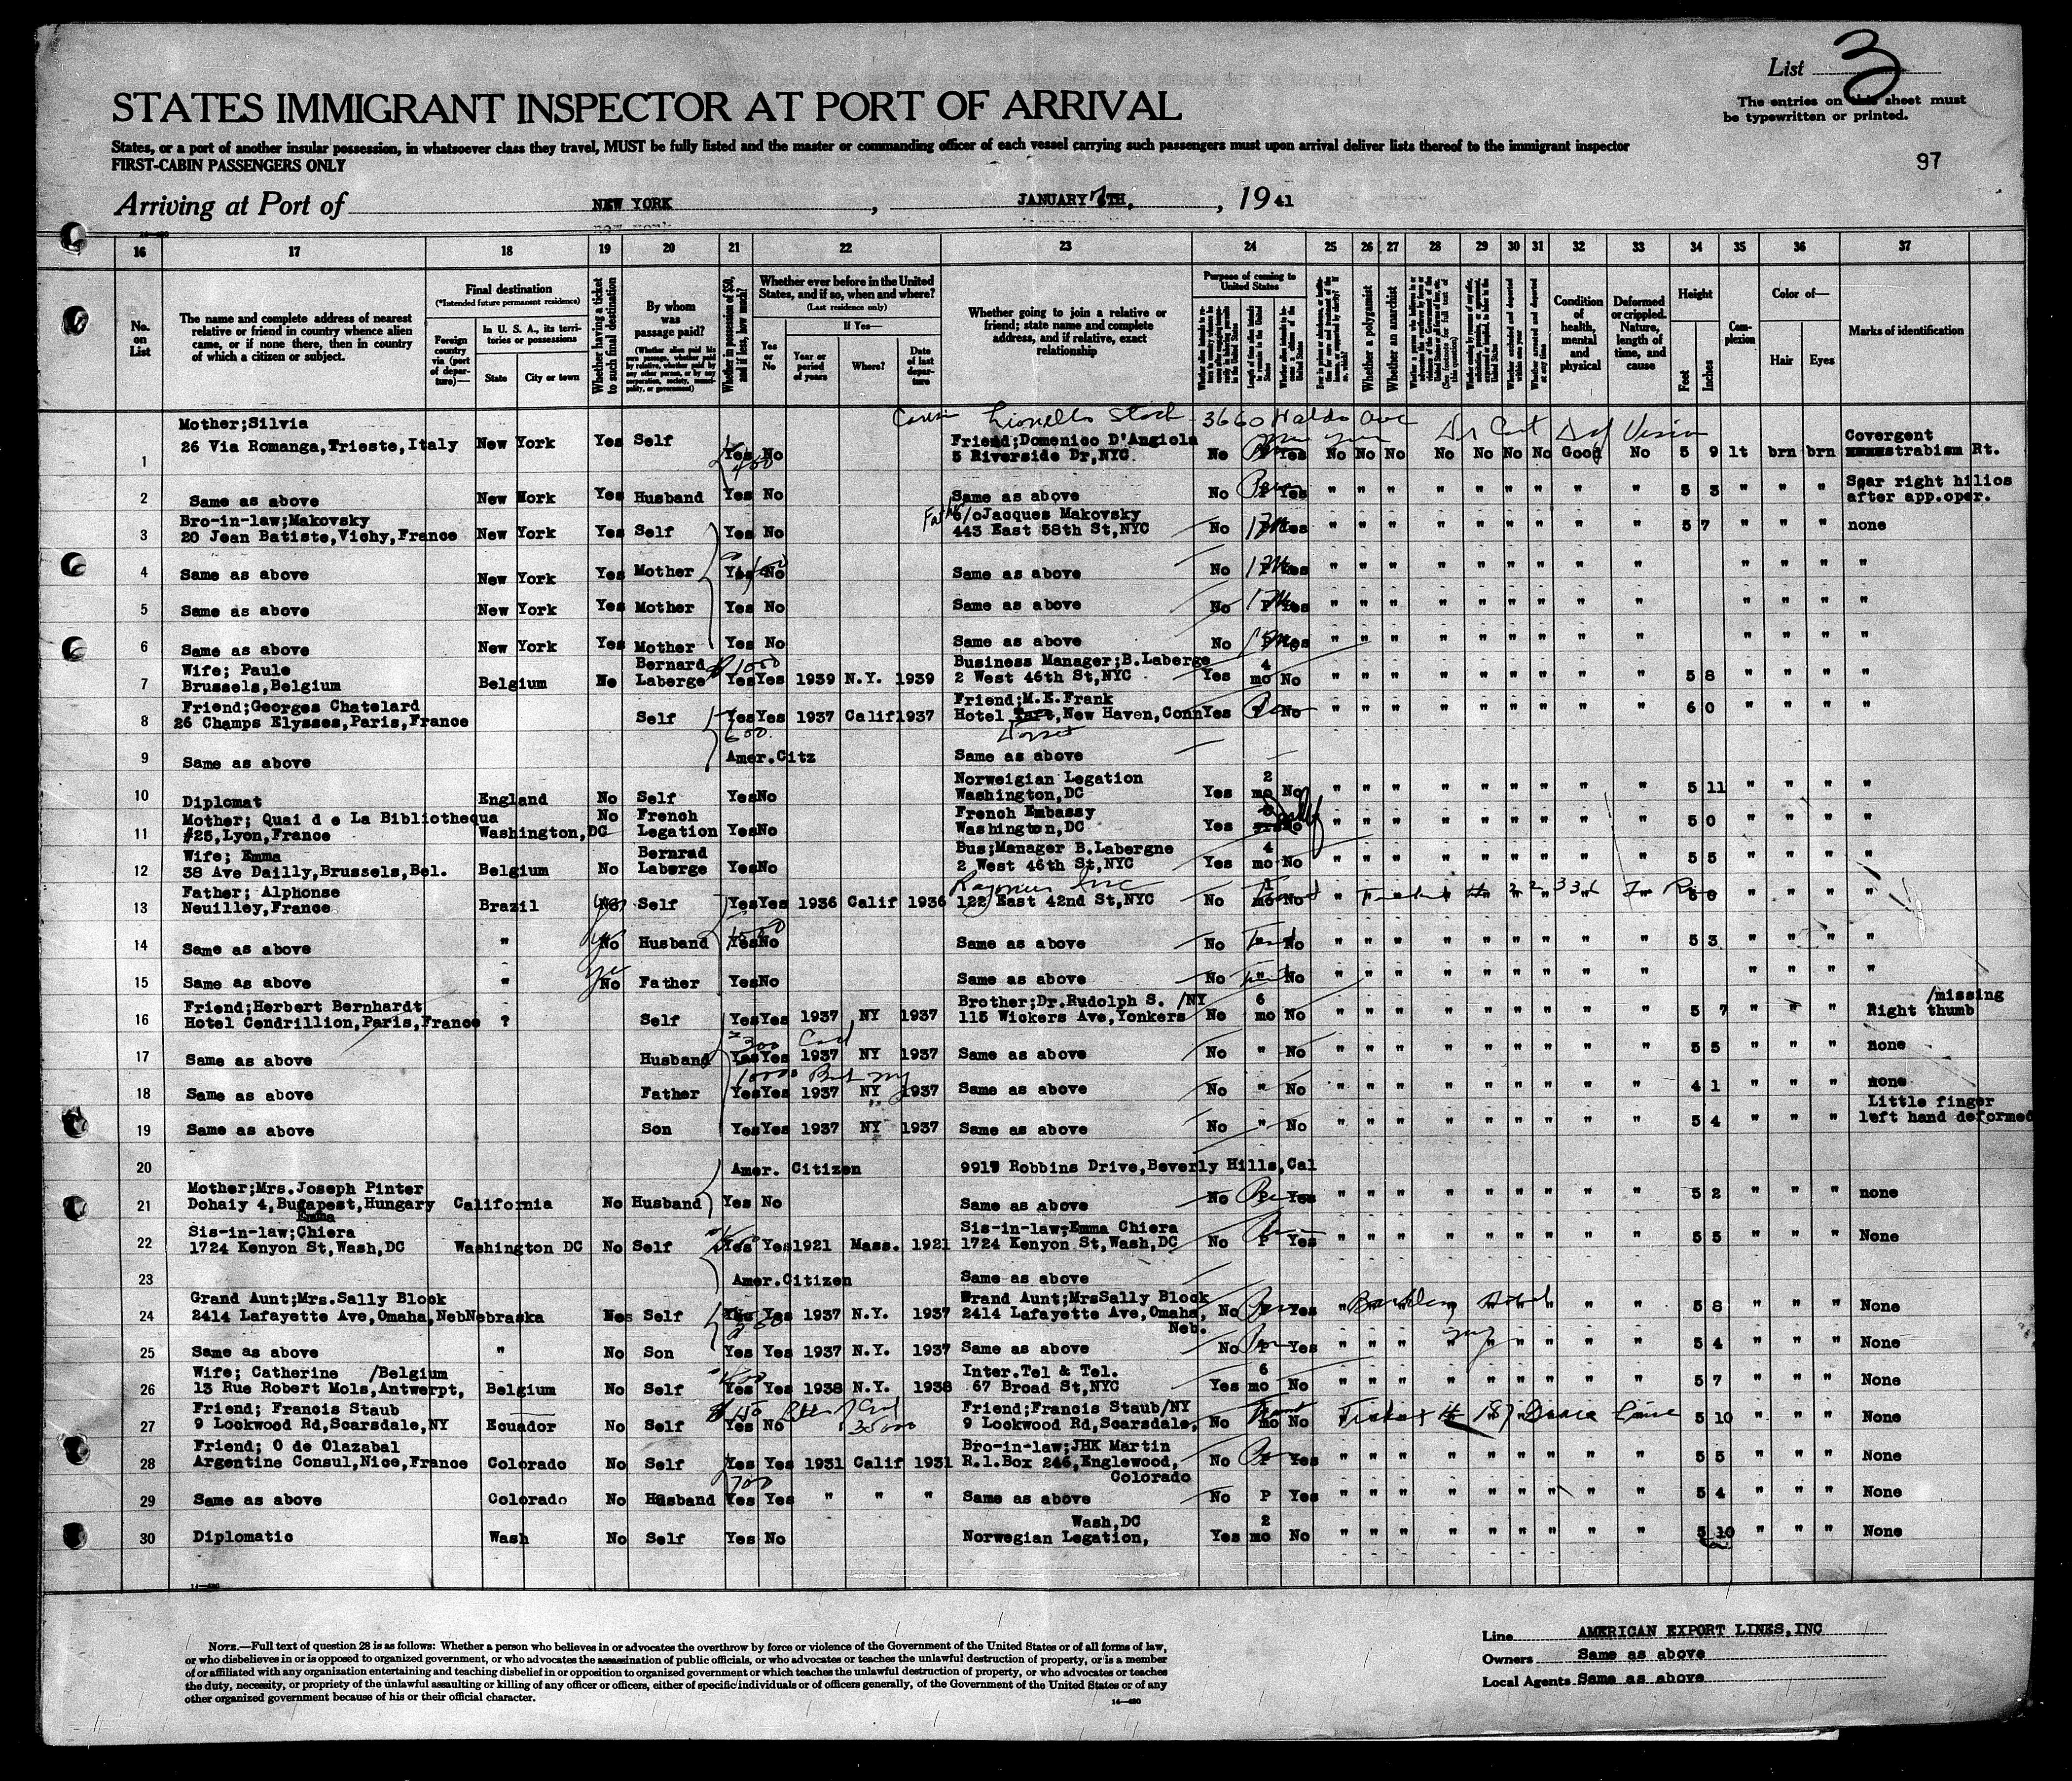 List 3
The entries on this sheet must
be typewritten or printed.
STATES IMMIGRANT INSPECTOR AT PORT OF ARRIVAL
States, or a port of another insular possession, in whatsoever class they travel, MUST be fully listed and the master or commanding officer of each vessel carrying such passengers must upon arrival deliver lists thereof to the immigrant inspector
FIRST-CABIN PASSENGERS ONLY
97
Arriving at Port of NEW YORK, JANUARY 7TH, 1941
16 17 18 19 20 21 22 23 24 25 26 27 28 29 30 31 32 33 34 35 36 37
No. on List
The name and complete address of nearest relative or friend in country whence alien came, or if none there, then in country of which a citizen or subject.
Final destination
(*Intended future permanent residence)
Foreign country via (port of departure)—
In U. S. A., its territories or possessions
State
City or town
Whether having a ticket to such final destination
By whom was passage paid?
Whether in possession of $50, and if less, how much?
Whether ever before in the United States, and if so, when and where?
(Last residence only)
If Yes—
Yes or No
Year or period of years
Where?
Date of last departure
Whether going to join a relative or friend; state name and complete address, and if relative, exact relationship
Purpose of coming to United States
Whether a polygamist
Whether an anarchist
Condition of health, mental and physical
Deformed or crippled. Nature, length of time, and cause
Height
Feet
Inches
Complexion
Color of—
Hair
Eyes
Marks of identification
3660 Waldo Ave
1 Mother;Silvia 26 Via Romanga,Trieste,Italy New York Yes Self Yes No Friend;Domenico D'Angiola 5 Riverside Dr,NYC No Yes No No No No No No No Good No 5 9 lt brn brn Covergent strabism Rt.
2 Same as above New York Yes Husband Yes No Same as above No Yes " " " " " " " " " 5 3 " " " Scar right hilios after app.oper.
3 Bro-in-law;Makovsky 20 Jean Batiste,Vichy,France New York Yes Self Yes No Father c/o Jacques Makovsky 443 East 58th St,NYC No Yes " " " " " " " " " 5 7 " " " none
4 Same as above New York Yes Mother Yes No Same as above No Yes " " " " " " " " " " " " "
5 Same as above New York Yes Mother Yes No Same as above No Yes " " " " " " " " " " " " "
6 Same as above New York Yes Mother Yes No Same as above No Yes " " " " " " " " " " " " "
7 Wife; Paule Brussels,Belgium Belgium No Bernard Laberge $1000 Yes Yes 1939 N.Y. 1939 Business Manager;B.Laberge 2 West 46th St,NYC Yes 4 mo No " " " " " " " " " 5 8 " " " "
8 Friend;Georges Chatelard 26 Champs Elysses,Paris,France Self Yes Yes 1937 Calif 1937 600 Friend;M.E.Frank Hotel, New Haven,Conn Yes No " " " " " " " " " 6 0 " " " "
9 Same as above Amer.Citz Same as above
10 Diplomat England No Self Yes No Norweigian Legation Washington,DC Yes 2 mo No " " " " " " " " " 5 11 " " " "
11 Mother; Quai d e La Bibliothequa #25,Lyon,France Washington,DC No French Legation Yes No French Embassy Washington,DC Yes No " " " " " " " " " 5 0 " " " "
12 Wife; Emma 38 Ave Dailly,Brussels,Bel. Belgium No Bernrad Laberge Yes No Bus;Manager B.Labergne 2 West 46th St,NYC Yes 4 mo No " " " " " " " " " 5 5 " " " "
13 Father; Alphonse Neuilley,France Brazil No Self Yes Yes 1936 Calif 1936 122 East 42nd St,NYC No mo No
14 Same as above " No Husband Yes No Same as above No " No " " " " " " " " " 5 3 " " " "
15 Same as above " No Father Yes No Same as above No " No " " " " " " " " " " " " "
16 Friend;Herbert Bernhardt Hotel Cendrillion,Paris,France ? Self Yes Yes 1937 NY 1937 Brother;Dr.Rudolph S. /NY 115 Wickers Ave,Yonkers No 6 mo No " " " " " " " " " 5 7 " " " Right /missing thumb
17 Same as above Husband Yes Yes 1937 NY 1937 Same as above No " No " " " " " " " " " 5 5 " " " none
18 Same as above Father Yes Yes 1937 NY 1937 Same as above No " No " " " " " " " " " 4 1 " " " none
19 Same as above Son Yes Yes 1937 NY 1937 Same as above No " No " " " " " " " " " 5 4 " " " Little finger left hand deformed
20 Amer. Citizen 9917 Robbins Drive,Beverly Hills,Cal
21 Mother;Mrs.Joseph Pinter Dohaiy 4,Bugapest,Hungary California No Husband Yes No Same as above No Yes " " " " " " " " " 5 2 " " " none
22 Sis-in-law;Emma Chiera 1724 Kenyon St,Wash,DC Washington DC No Self Yes Yes 1921 Mass. 1921 Sis-in-law;Emma Chiera 1724 Kenyon St,Wash,DC No P Yes " " " " " " " " " 5 5 " " " None
23 Amer.Citizen Same as above
24 Grand Aunt;Mrs.Sally Block 2414 Lafayette Ave,Omaha,Neb Nebraska Self Yes Yes 1937 N.Y. 1937 Grand Aunt;MrsSally Block 2414 Lafayette Ave,Omaha, Neb. No Yes Barclay Hotel NY 5 8 " " " None
25 Same as above " No Son Yes Yes 1937 N.Y. 1937 Same as above No P Yes " " " " " " " " " 5 4 " " " None
26 Wife; Catherine /Belgium 13 Rue Robert Mols,Antwerpt, Belgium No Self Yes Yes 1938 N.Y. 1938 Inter.Tel & Tel. 67 Broad St,NYC Yes 6 mo No " " " " " " " " " 5 7 " " " None
27 Friend; Francis Staub 9 Lockwood Rd,Scarsdale,NY Ecuador No Self $150 Yes No Friend;Francis Staub/NY 9 Lockwood Rd,Scarsdale, No mo No Ticket # 187 Grace Line 5 10 " " " None
28 Friend; O de Olazabal Argentine Consul,Nice,France Colorado No Self Yes Yes 1931 Calif 1931 700 Bro-in-law;JHK Martin R.1.Box 246,Englewood, Colorado No P Yes " " " " " " " " " 5 5 " " " None
29 Same as above Colorado No Husband Yes Yes " " " Same as above No P Yes " " " " " " " " " 5 4 " " " None
30 Diplomatic Wash No Self Yes No Wash,DC Norwegian Legation, Yes 2 mo No " " " " " " " " " 5 10 " " " None
NOTE.—Full text of question 28 is as follows: Whether a person who believes in or advocates the overthrow by force or violence of the Government of the United States or of all forms of law,
or who disbelieves in or is opposed to organized government, or who advocates the assassination of public officials, or who advocates or teaches the unlawful destruction of property, or is a member
of or affiliated with any organization entertaining and teaching disbelief in or opposition to organized government or which teaches the unlawful destruction of property, or who advocates or teaches
the duty, necessity, or propriety of the unlawful assaulting or killing of any officer or officers, either of specific individuals or of officers generally, of the Government of the United States or of any
other organized government because of his or their official character.
14—430
Line AMERICAN EXPORT LINES,INC
Owners Same as above
Local Agents Same as above